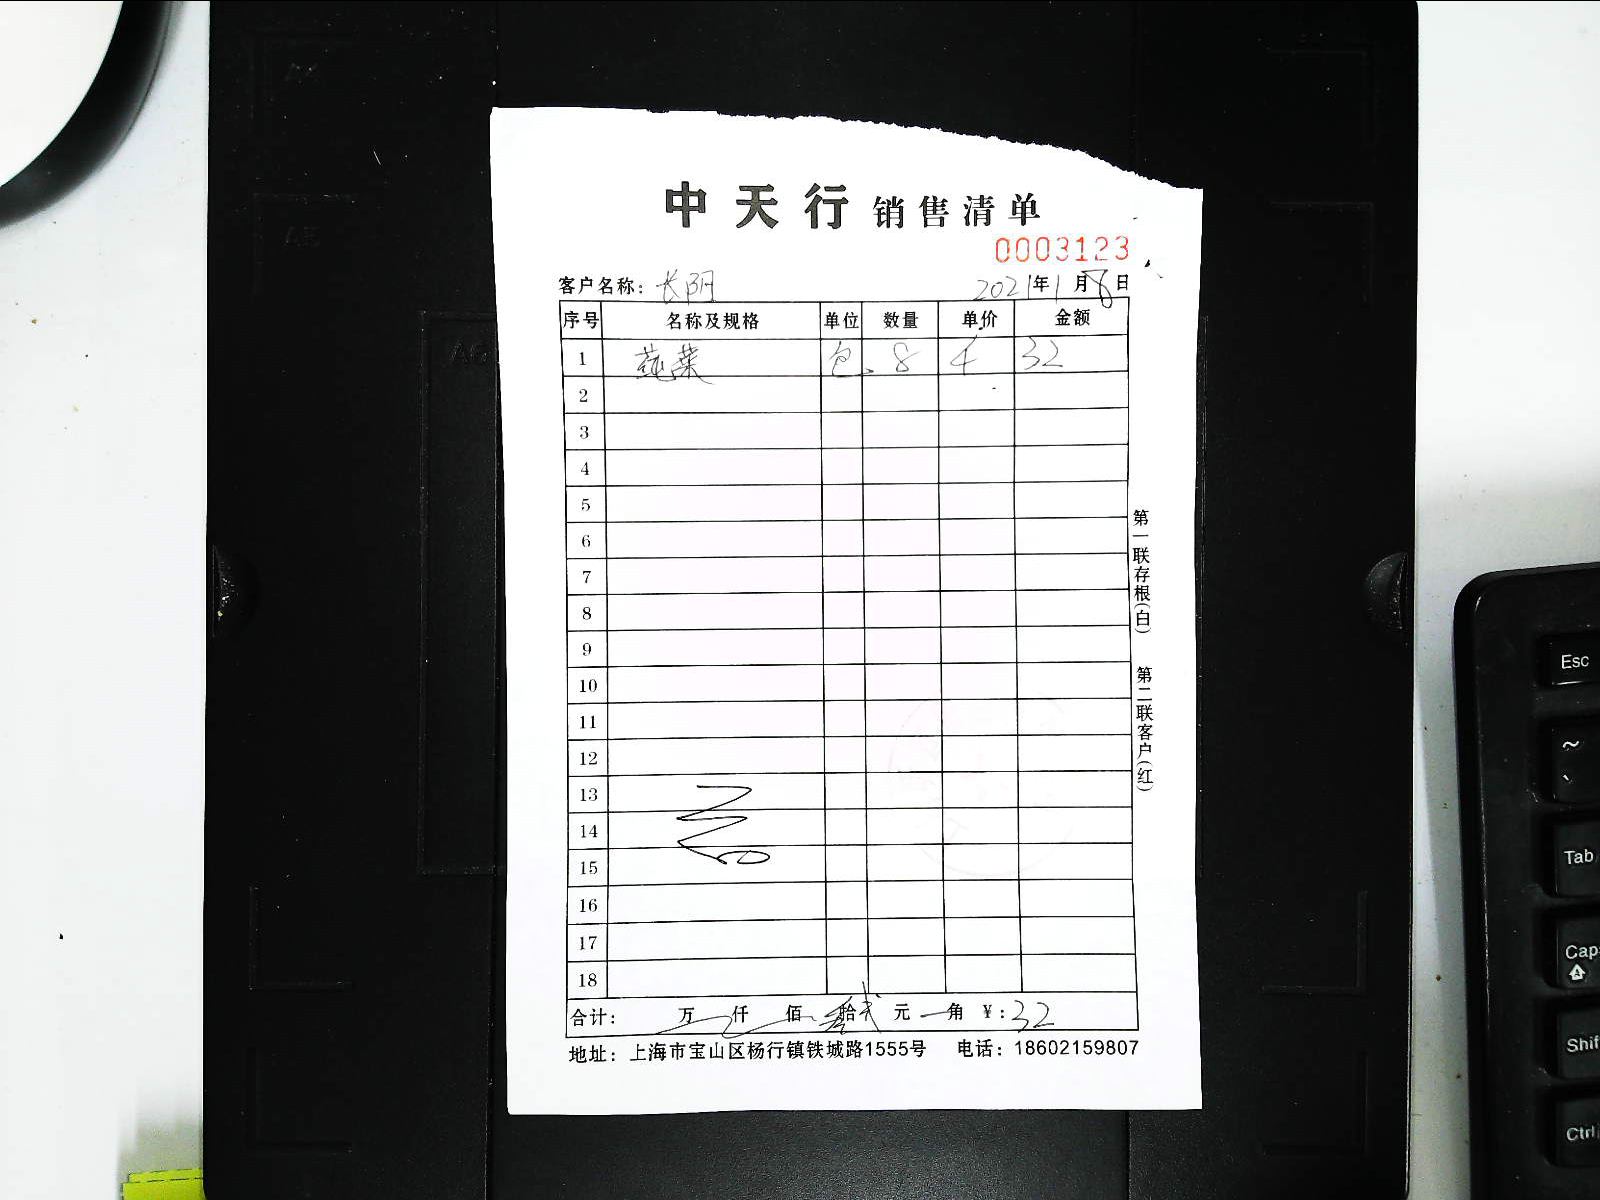 中天行 销售清单
0003123
客户名称：长阳 2021年1月8日
序号 名称及规格 单位 数量 单价 金额
1 莼菜 包 8 4 32
2
3
4
5
6
7
8
9
10
11
12
13
14
15
16
17
18
合计： 万 仟 佰 叁拾贰元 角 ¥：32
地址：上海市宝山区杨行镇铁城路1555号 电话：18602159807
第一联存根(白) 第二联客户(红)
Esc
~
、
Tab
Cap
Shif
Ctrl